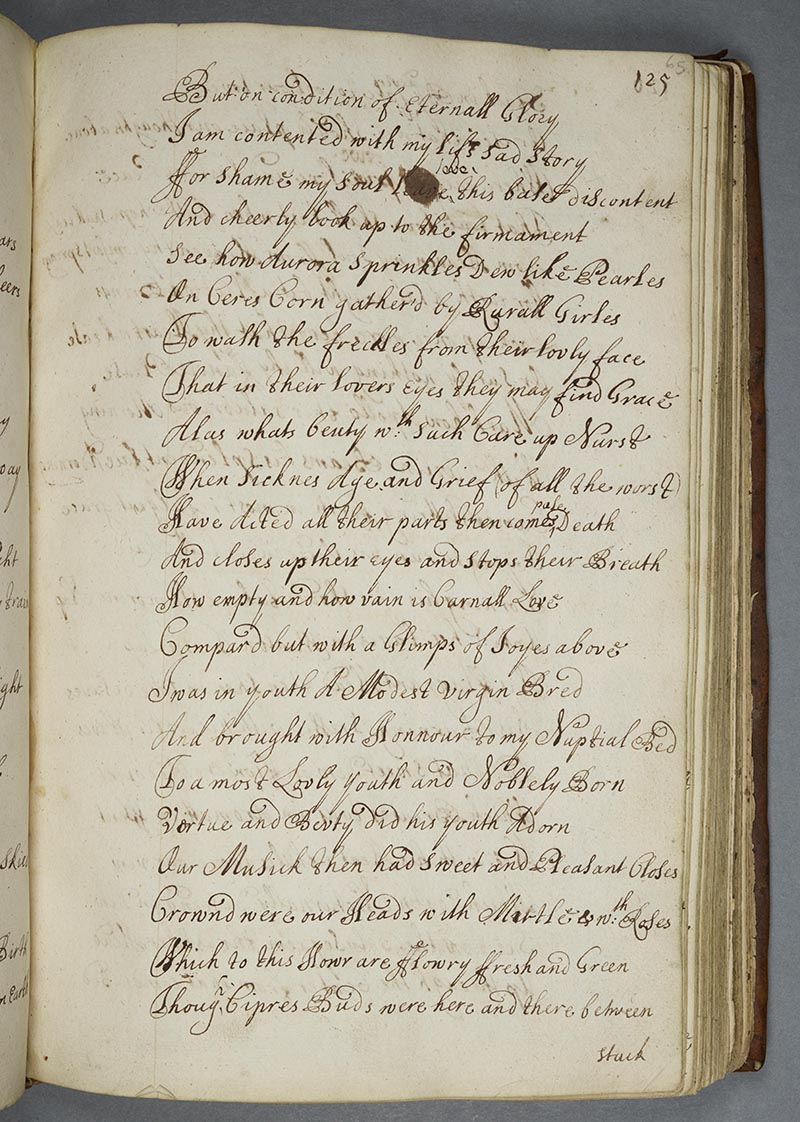 125
65
But on condition of Eternall Glory
I am contented with my lifs sad story
ffor shame my soul leave this base discontent
And cheerly look up to the firmament
See how Aurora Sprinkles Dew like Pearles
On Ceres Corn gather'd by Rurall Girles
To wash the freckles from their lovly face
That in their lovers eyes they may find Grace
Alas whats beuty wth such Care up Nurst
When Sicknes Age and Grief (of all the worst)
pale
Have Acted all their parts then comes Death
And closes up their eyes and stops their Breath
How empty and how vain is Carnall Love
Compard but with a Glimps of Joyes above
I was in youth A Modest virgin Bred
And brought with Honnour to my Nuptial Bed
To a most Lovly youth and Noblely Born
Vertue and Bevty did his youth Adorn
Our Musick then had sweet and Pleasant Closes
Crownd were our Heads with Mirtle & wth Roses
Which to this Howr are fflowry ffresh and Green
Though Cipres Buds were here and there between
stuck